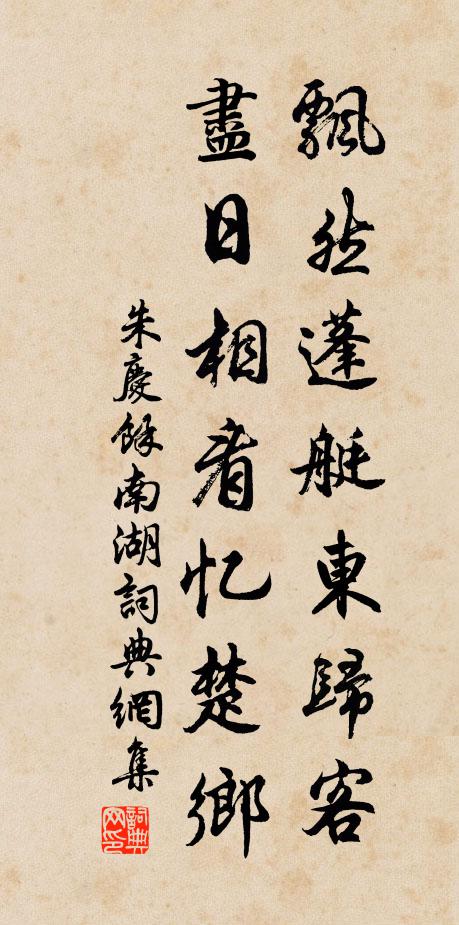 飄然蓬艇東歸客
盡日相看忆楚鄉
朱慶餘南湖詞典網集
詞典網印